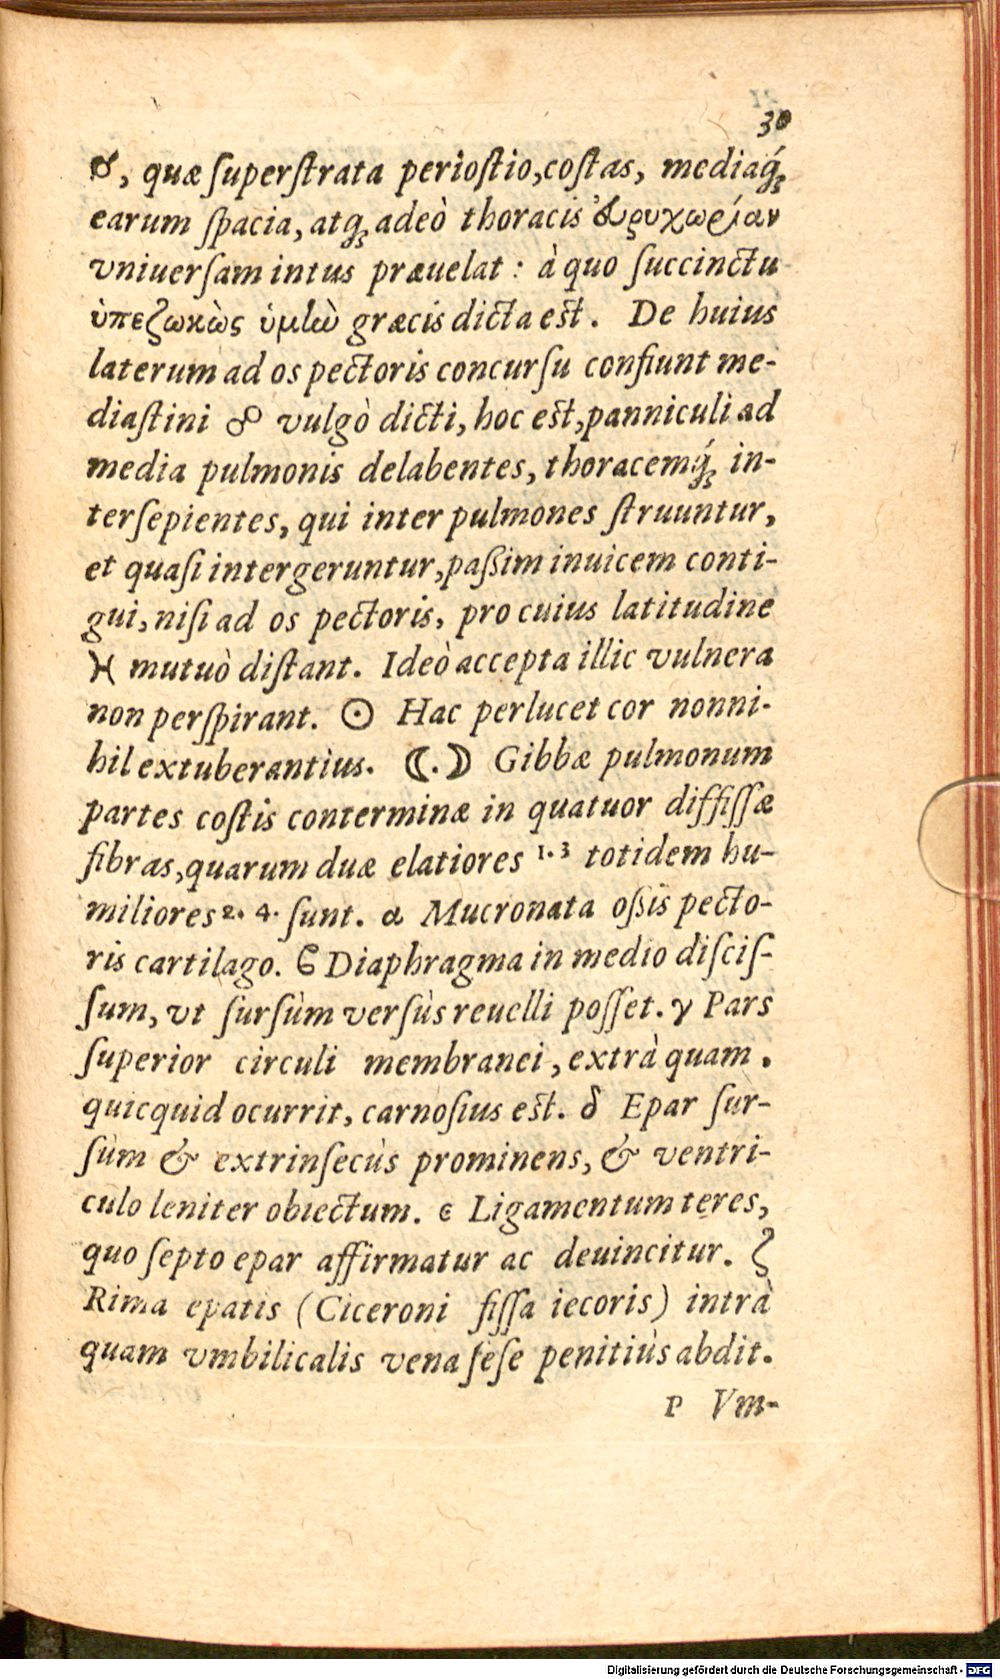 30
♉, quæ ſuperſtrata perioſtio, coſtas, mediaq́;
earum ſpacia, atq; adeò thoracis ἐυρυχωρίαν
vniuerſam intus præuelat : à quo ſuccinctu
ὑπεζωκὼς ὑμὴν græcis dicta eſt. De huius
laterum ad os pectoris concurſu confiunt me-
diaſtini ☍ vulgò dicti, hoc eſt, panniculi ad
media pulmonis delabentes, thoracemq́; in-
terſepientes, qui inter pulmones ſtruuntur,
et quaſi intergeruntur, paßim inuicem conti-
gui, niſi ad os pectoris, pro cuius latitudine
♓ mutuò diſtant. Ideò accepta illic vulnera
non perſpirant. ☉ Hac perlucet cor nonni-
hil extuberantius. ☾.☽ Gibbæ pulmonum
partes coſtis conterminæ in quatuor diffiſſæ
fibras, quarum duæ elatiores 1. 3 totidem hu-
miliores 2. 4. ſunt. α Mucronata oßis pecto-
ris cartilago. ϐ Diaphragma in medio diſciſ-
ſum, vt ſurſùm verſùs reuelli poſſet. γ Pars
ſuperior circuli membranei, extrà quam .
quicquid ocurrit, carnoſius eſt. δ Epar ſur-
ſùm & extrinſecùs prominens, & ventri-
culo leniter obiectum. ε Ligamentum teres,
quo ſepto epar affirmatur ac deuincitur. ζ
Rima epatis (Ciceroni fiſſa iecoris) intrà
quam vmbilicalis vena ſeſe penitiùs abdit.
P Vm-
Digitalisierung gefördert durch die Deutsche Forschungsgemeinschaft - DFG